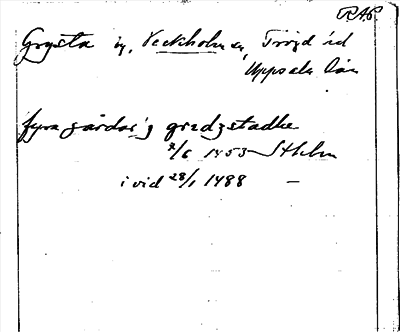 RAP
Grysta by, Veckholm sn, Trögd hd
Uppsala län
fyra gårdar j gredzstadhe
2/6 1453 Sthlm
i vid 28/1 1488 —